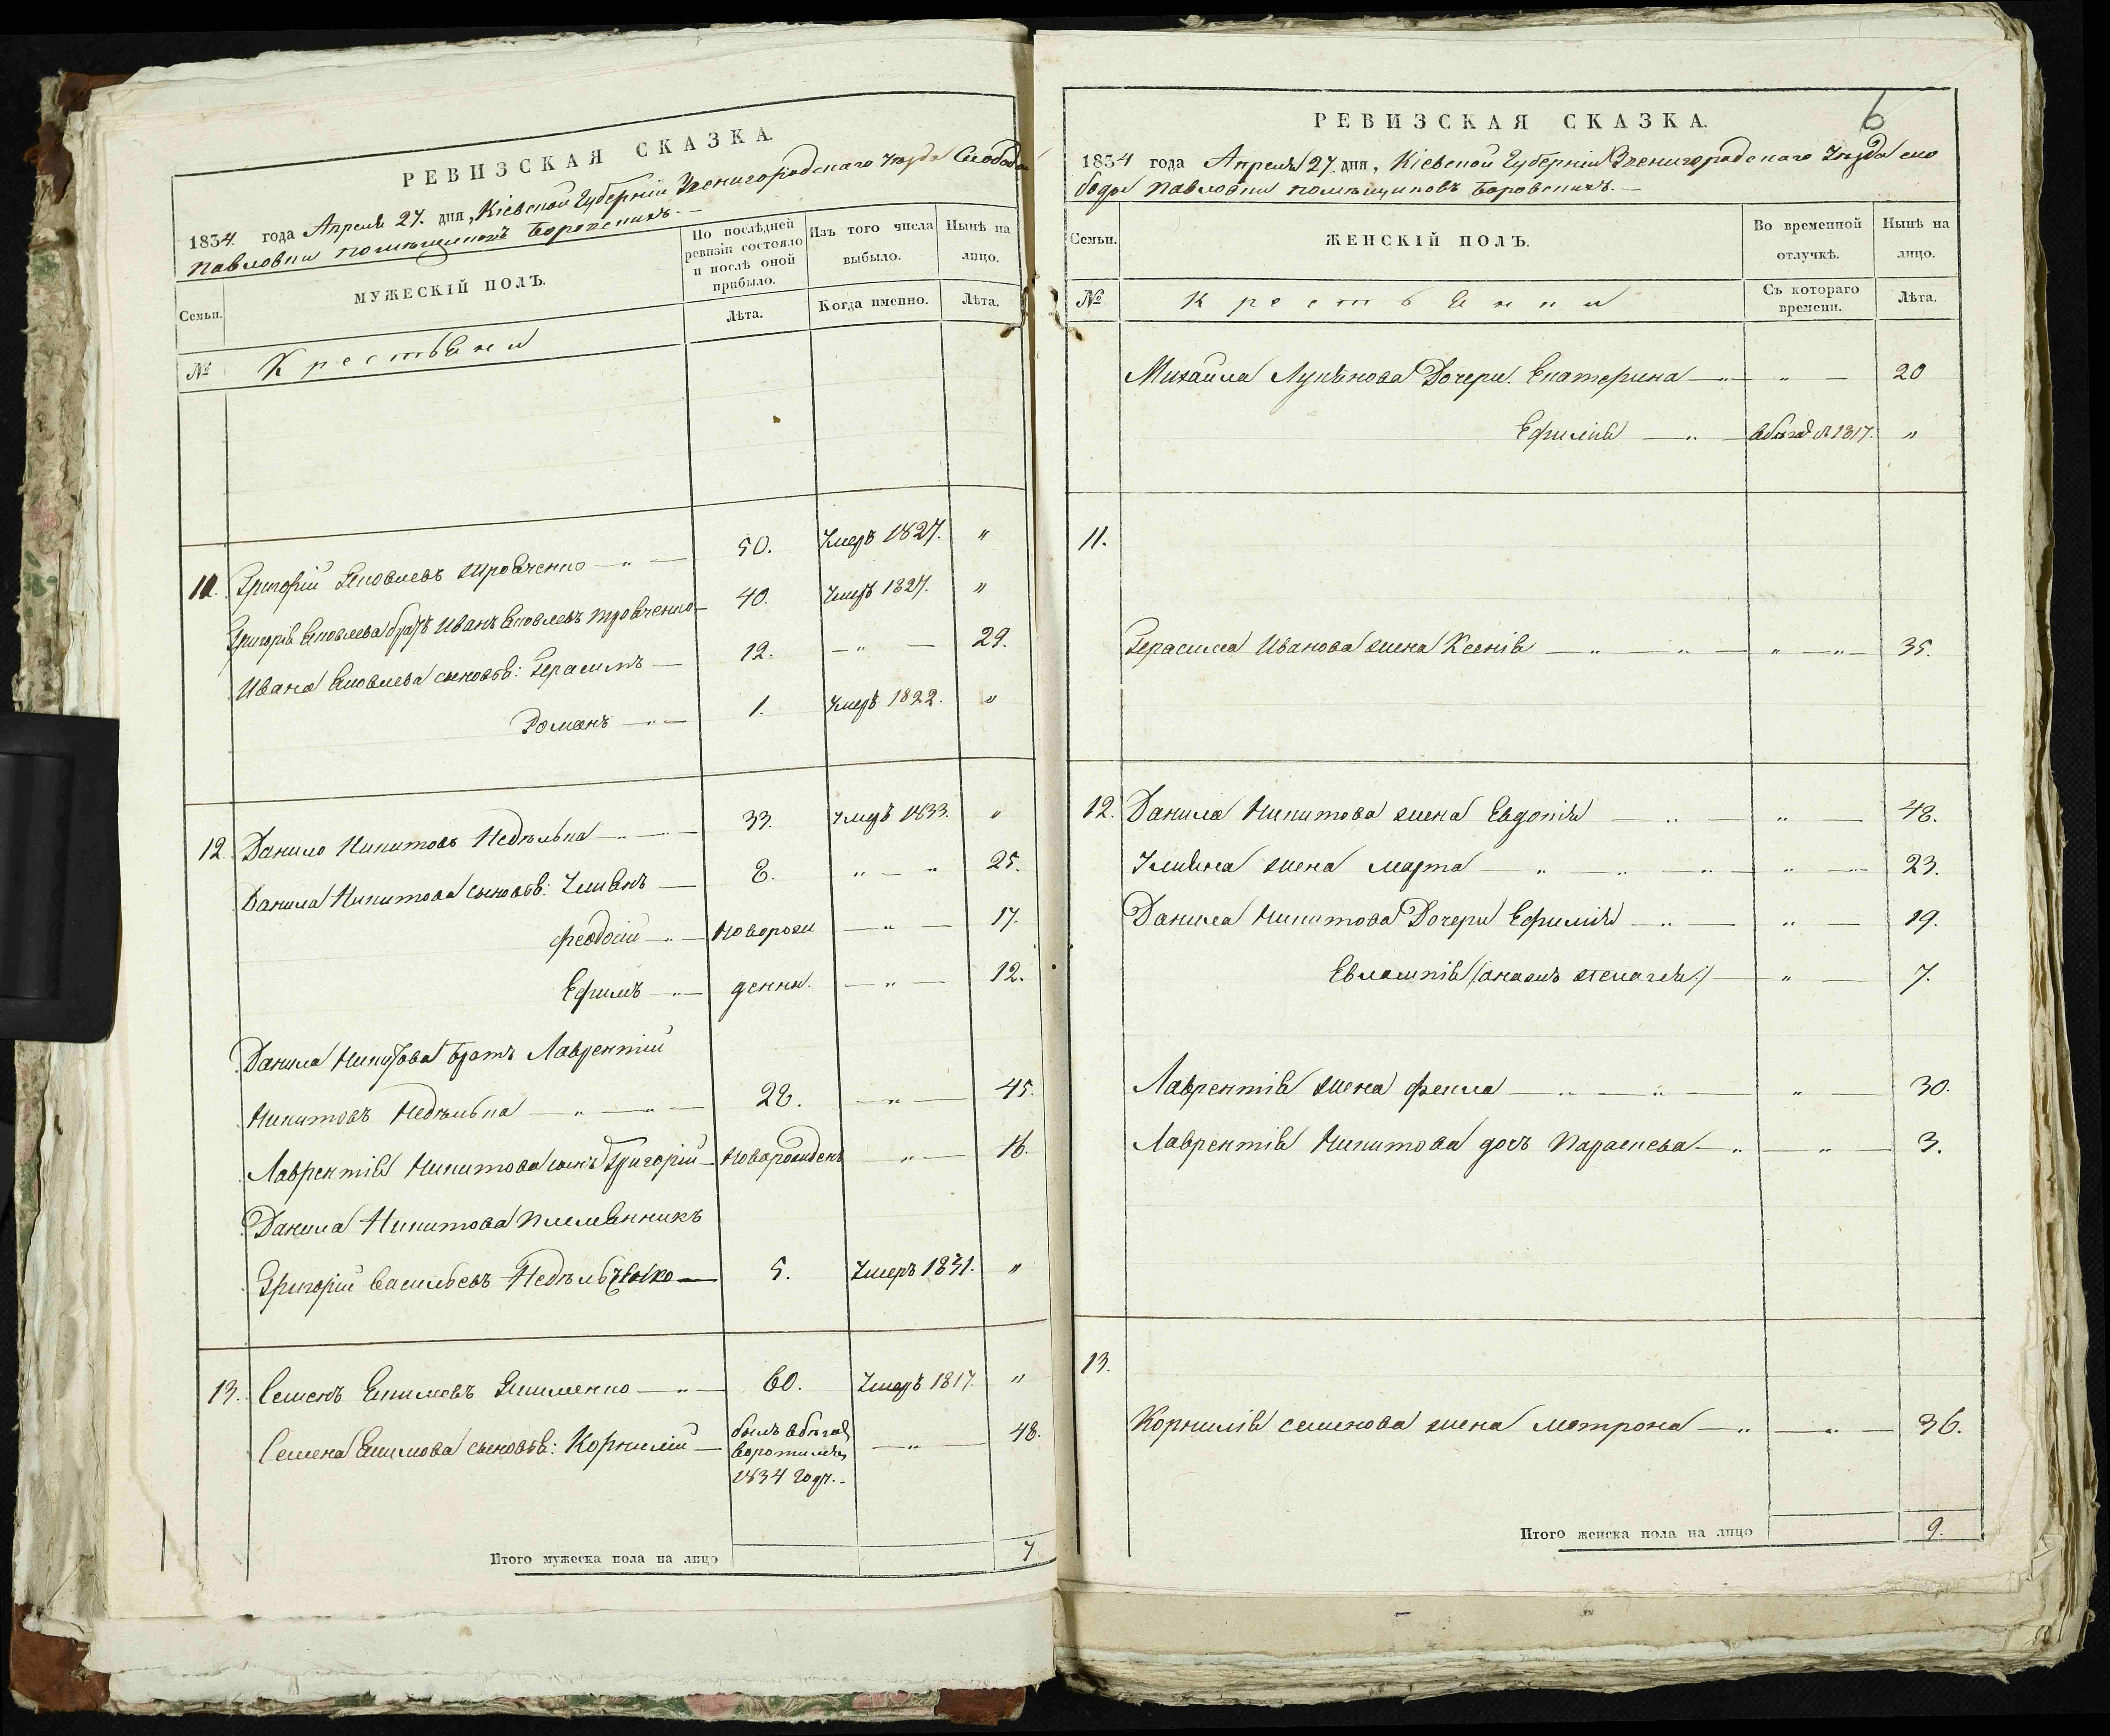 РЕВИЗСКАЯ СКАЗКА.
1834. года Апреля 27. дня, Кіевской Губерніи Звенигородскаго Уѣзда Слободы
Павловки помѣщиковъ Боровскихъ.
Семьи.
МУЖЕСКІЙ ПОЛЪ.
По послѣдней ревизіи состояло и послѣ оной прибыло.
Изъ того числа выбыло.
Нынѣ на лицо.
Лѣта.
Когда именно.
Лѣта.
№ Крестьяни
11. Григорій Яковлевъ — „ — 50. Умеръ 1827. „
Григорія Яковлева братъ Иванъ Яковлевъ — 40. Умеръ 1827. „
Ивана Яковлева сыновья: Герасимъ — 12. — „ — 29.
Романъ — „ — 1. Умеръ 1822. „
12. Данило Никитовъ Недѣлька — „ — 33. Умеръ 1833. „
Данила Никитова сыновья: Умянъ — 8. „ — „ 25.
Феодосій — „ — новорож — „ — 17.
Ефимъ — „ — денны. — „ — 12.
Данила Никитова братъ Лаврентій
Никитовъ Недѣлька — „ — „ — 28. — „ — 45.
Лаврентія Никитова сынъ Григорій — Новорожденъ — „ — 16.
Данила Никитова племянникъ
Григорій Васильевъ — 5. Умеръ 1831. „
13. Семенъ Екимовъ Якименко — „ — 60. Умеръ 1817. „
Семена Екимова сыновья: Корнилій — былъ в бѣгах — „ — 48.
воротился
1834 года.
Итого мужеска пола на лицо 7
6
РЕВИЗСКАЯ СКАЗКА.
1834 года Апреля 27. дня, Кіевской Губерніи Звенигородскаго Уѣзда сло
боды Павловки помѣщиковъ Боровскихъ. —
Семьи.
ЖЕНСКІЙ ПОЛЪ.
Во временной отлучкѣ.
Нынѣ на лицо.
№ Крестьянки
Съ котораго времени.
Лѣта.
Михайла Лукянова Дочери. Екатерина — „ — „ — 20
Ефимія — „ — в бѣгах 1817. „
11.
Герасима Иванова жена Ксенія — „ — „ — „ — „ — 35.
12. Данила Никитова жена Евдокія — „ — „ — 48.
Умяна жена Марта — „ — „ — „ — „ — 23.
Данила Никитова Дочери Ефимія — „ — „ — 19.
Евлампія — „ — 7.
Лаврентія жена Фекла — „ — „ — „ — 30.
Лаврентія Никитова дочъ Параскева — „ — „ — 3.
13.
Корнилія Семенова жена Мотрона — „ — „ — 36.
Итого женска пола на лицо 9.